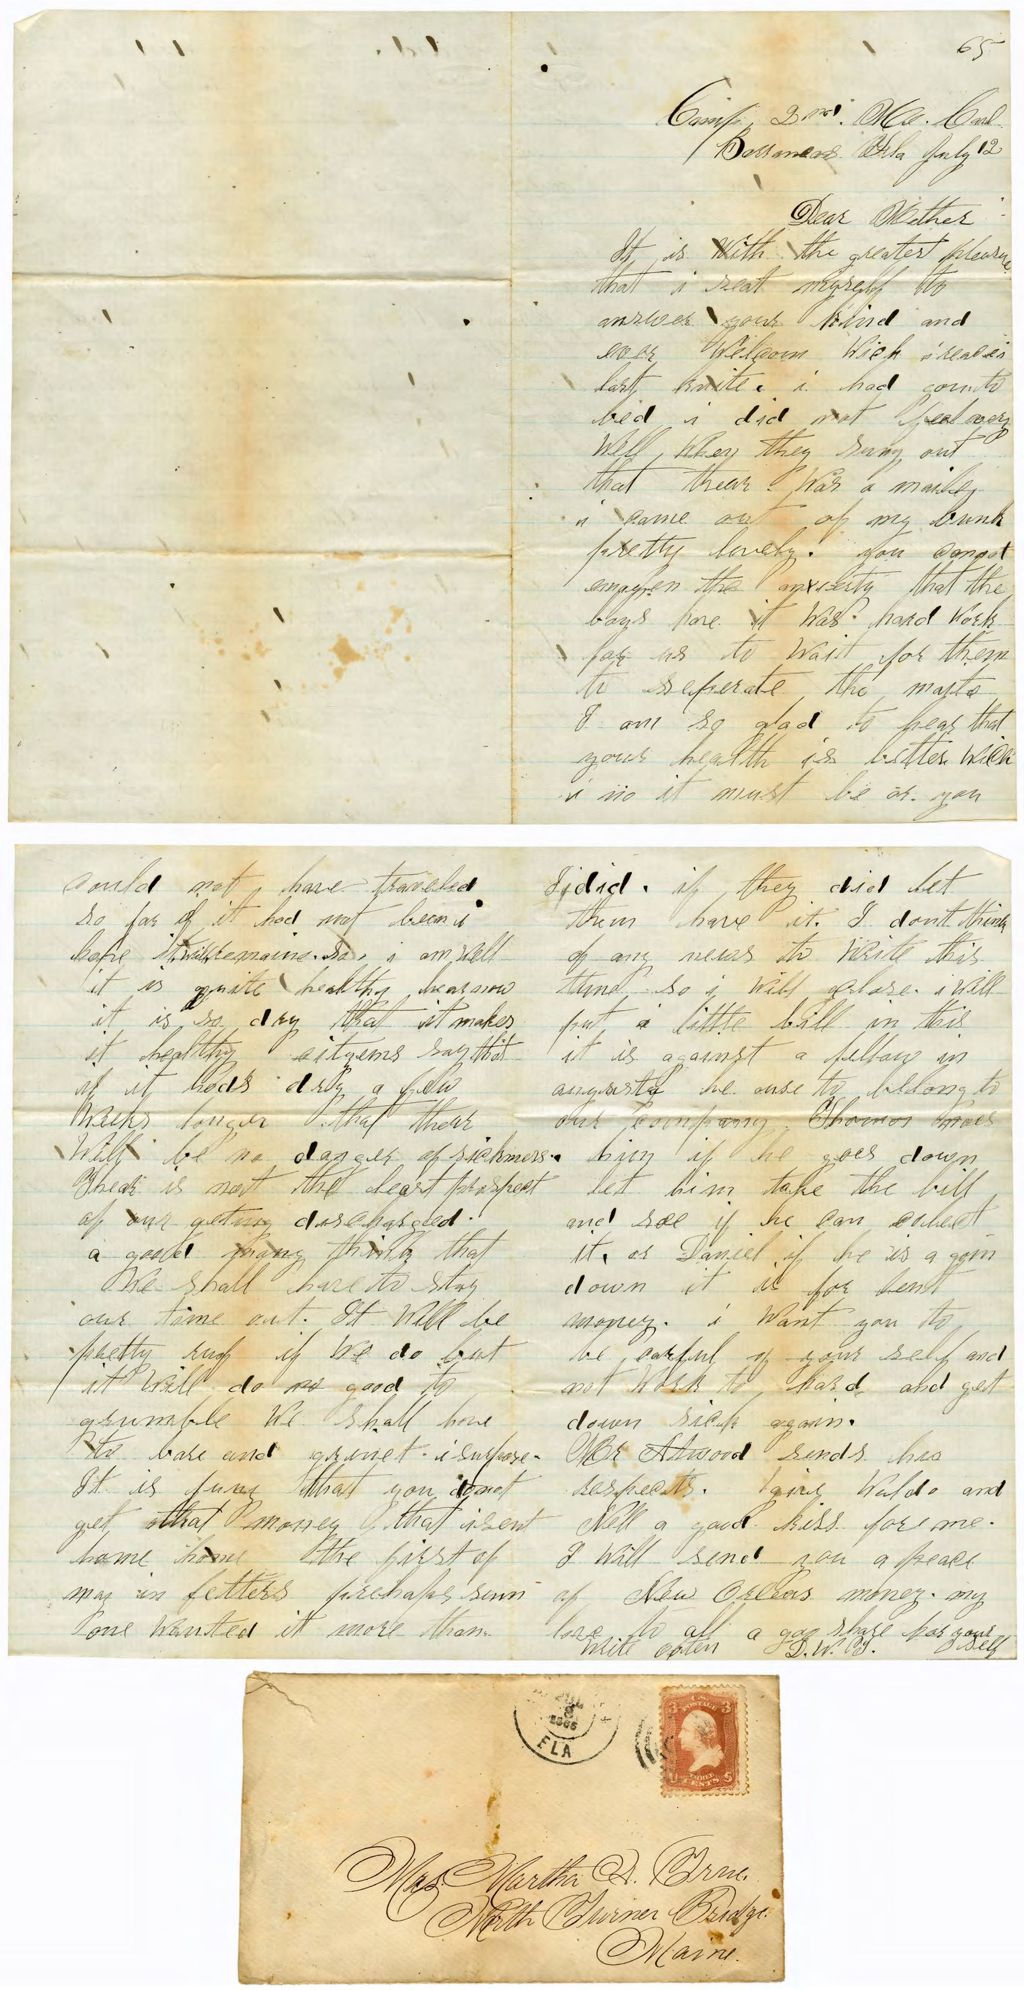 65
Camp, 2nd. Me. Cav.
Barrancas Fla July 12
Dear Mother
It is With the greatest pleasure
that i seat myself to
answer your kind and
ever Welcom Wich i receivd
last knite. i had gon to
bed i did not feel very
Well, When they sung out
that thear Was a maile,
i came out of my bunk
pretty lovely. you cannot
emagen the anxiety that the
boys have it Was hard Work
for us to Wait for them
to seperate the mails
I am so glad to hear that
your health is better Wich
i no it must be or you
could not have traveled
so far if it had not been i
hope it will remains so. i am Well
it is quite healthy hear now
it is so dry that it makes
it healthy citysens say that
if it holds dry a few
Weeks longer that thear
Will be no danger of sickness.
Thear is not the least prospect
of our geting discharged.
a good many things that
We shall have to stay
our time out. It Will be
pretty ruf if We do but
it Will do no good to
grumble We shall have
to bare and grinet i supose.
It is funy that you do not
get that money that i sent
home home the first of
may in letters perhaps sum
one Wanted it more than
I did. if they did let
them have it. I dont think
of any news to Write this
time so i Will close. i Will
put a little bill in this
it is against a fellow in
augusta he ouse to belong to
our company Thomas
him if he goes down
let him take the bill
and see if he can colect
it, or Daniel if he is a goin
down it is for lent
money. i Want you to
be carful of your self and
not Work to hard and get
down sick again.
Mr Atwood sends his
respects. give Waldo and
Nell a good kiss for me.
I Will send you a peace
of New Orleans money. my
love to all a good share for your
self
Write often D. W. T.
1865
FLA
U.S. POSTAGE
3 3
THREE CENTS
Mrs Martha D. True.
North Turner Bridge.
Maine.